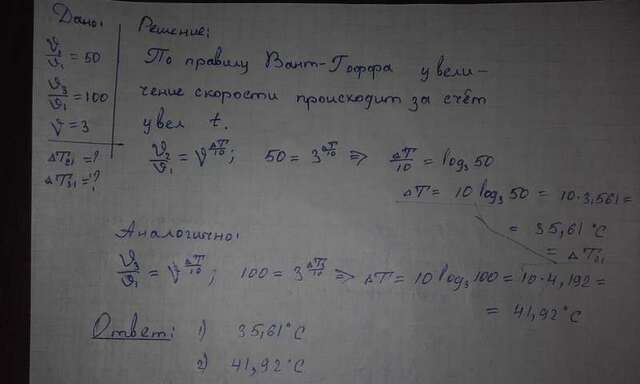 Дано:
ϑ₂/ϑ₁ = 50
ϑ₃/ϑ₁ = 100
γ = 3
ΔT₂₁ = ?
ΔT₃₁ = ?
Решение:
По правилу Вант-Гоффа увели-
чение скорости происходит за счёт
увел t.
ϑ₂/ϑ₁ = γ^(ΔT/10); 50 = 3^(ΔT/10) => ΔT/10 = log₃50
ΔT = 10 log₃ 50 = 10·3,561 =
= 35,61 °C
= ΔT₂₁
Аналогично:
ϑ₃/ϑ₁ = γ^(ΔT/10); 100 = 3^(ΔT/10) => ΔT = 10 log₃ 100 = 10·4,192 =
= 41,92 °C
Ответ: 1) 35,61°C
2) 41,92°C